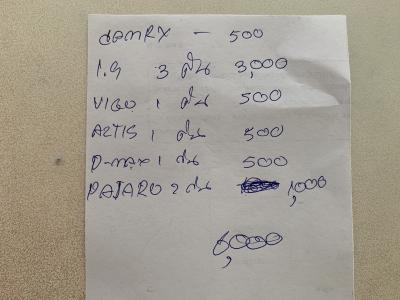 CAMRY - 500
1.9 3 คัน 3,000
VIGO 1 คัน 500
ALTIS 1 คัน 500
D-MAX 1 คัน 500
PAJARO 2 คัน 1,000
6,000